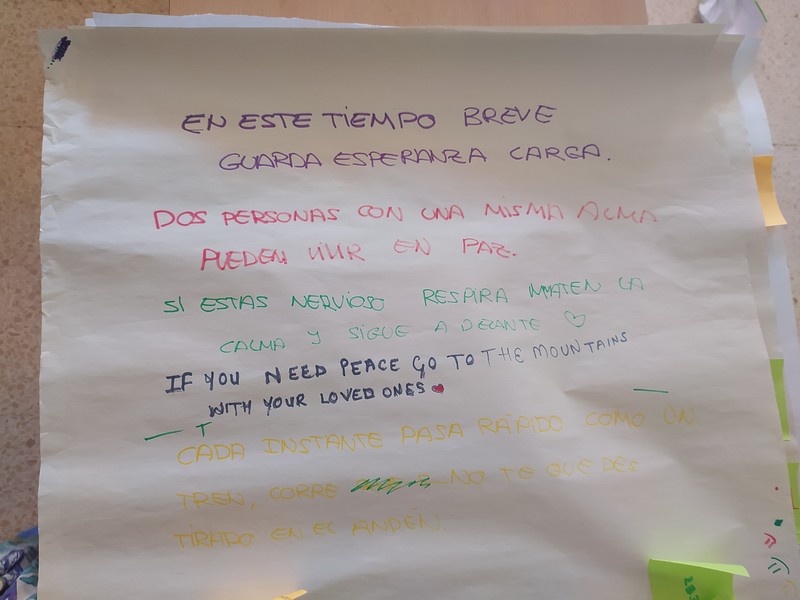 EN ESTE TIEMPO BREVE
GUARDA ESPERANZA CARGA.
DOS PERSONAS CON UNA MISMA ALMA
PUEDEN VIVIR EN PAZ.
SI ESTAS NERVIOSO RESPIRA MANTEN LA
CALMA Y SIGUE ADELANTE ♡
IF YOU NEED PEACE GO TO THE MOUNTAINS
WITH YOUR LOVED ONES
CADA INSTANTE PASA RÁPIDO COMO UN
TREN, CORRE NO TE QUEDES
TIRADO EN EL ANDÉN.